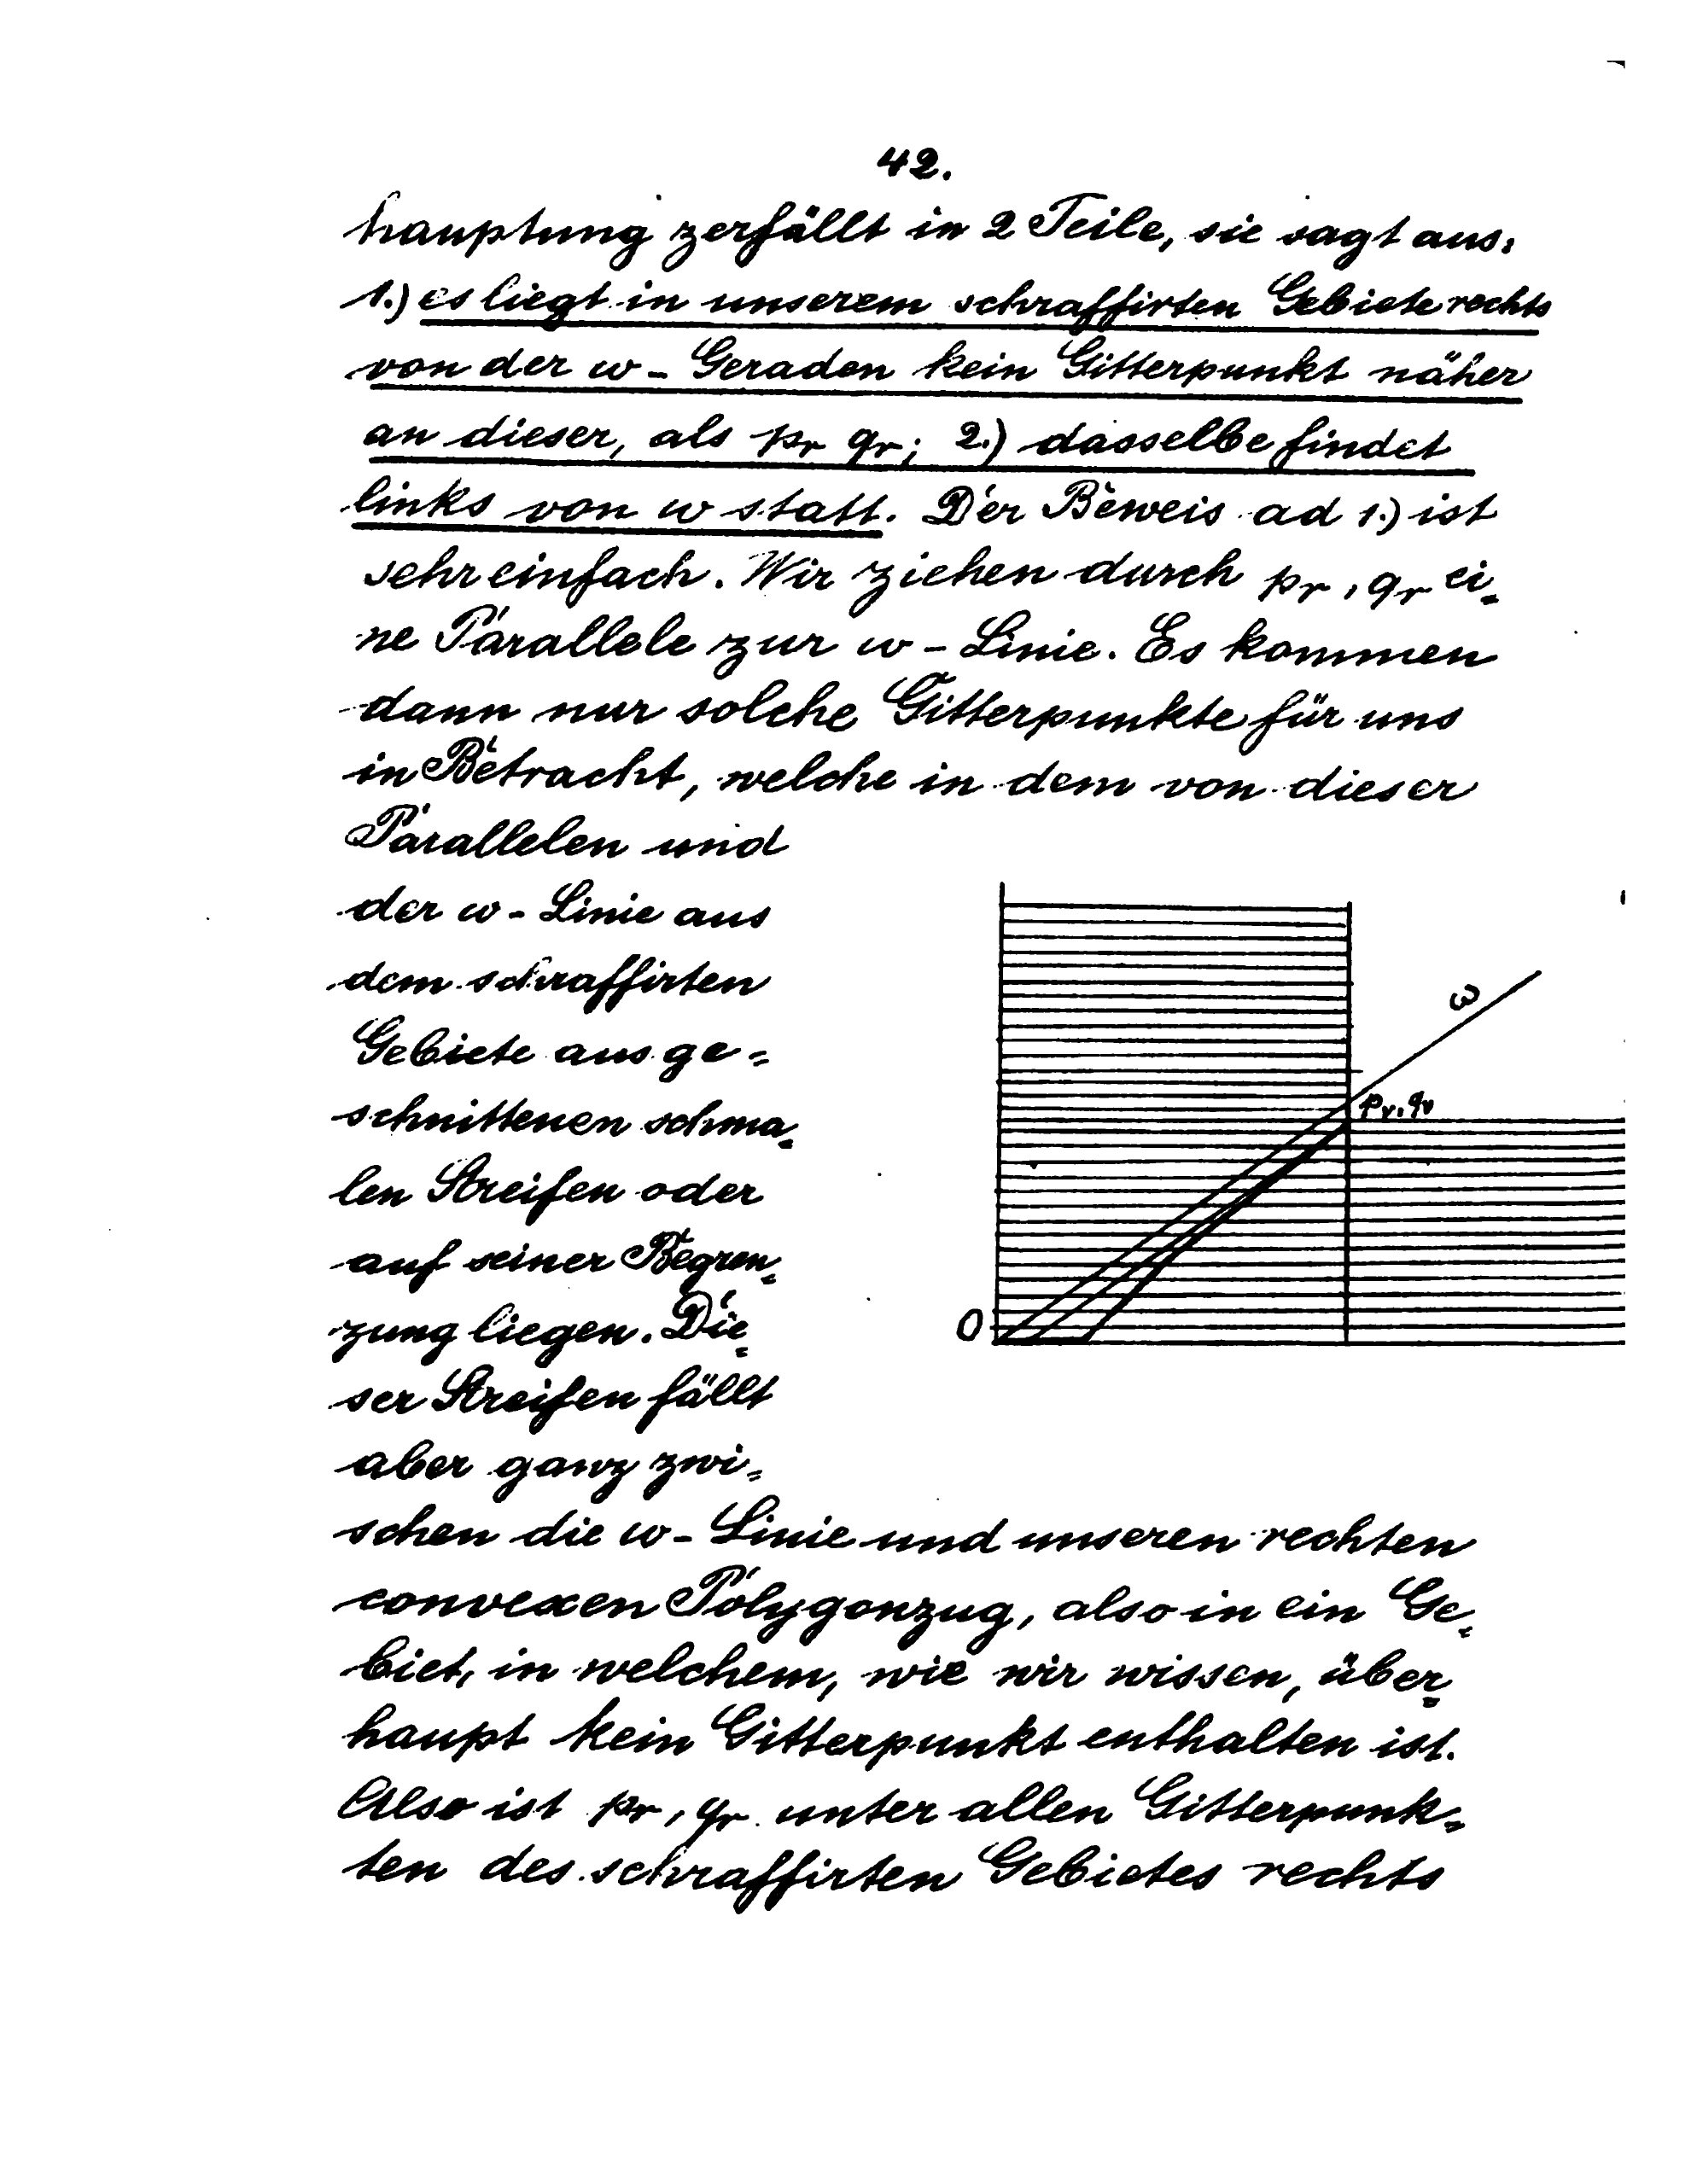 42.
hauptung zerfällt in 2 Teile, sie sagt aus:
1.) es liegt in unserem schraffirten Gebiete rechts
von der ω - Geraden kein Gitterpunkt näher
an dieser, als pν qν; 2.) dasselbe findet
links von ω statt. Der Beweis ad 1.) ist
sehr einfach. Wir ziehen durch pν, qν ei-
ne Parallele zur ω - Linie. Es kommen
dann nur solche Gitterpunkte für uns
in Betracht, welche in dem von dieser
Parallelen und
der ω - Linie aus
dem schraffirten
Gebiete ausge-
schnittenen schma-
len Streifen oder
auf seiner Begren-
zung liegen. Die-
ser Streifen fällt
aber ganz zwi-
schen die ω - Linie und unseren rechten
convexen Polygonzug, also in ein Ge-
biet, in welchem, wie wir wissen, über-
haupt kein Gitterpunkt enthalten ist.
Also ist pν, qν unter allen Gitterpunk-
ten des schraffirten Gebietes rechts
ω
pν, qν
O